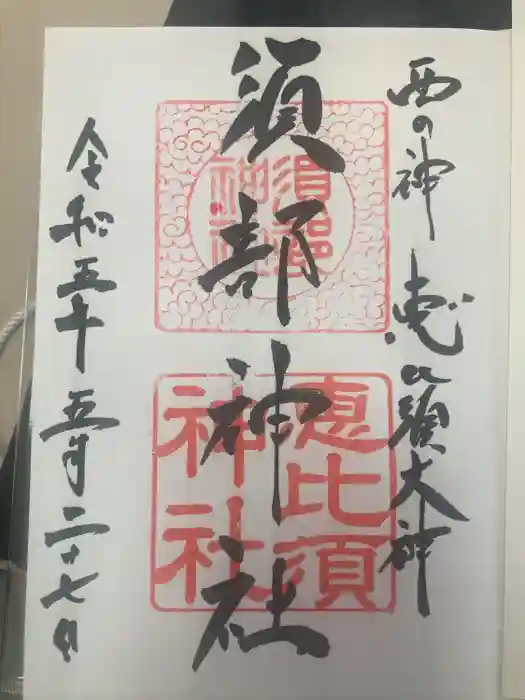 西の神 恵比須大神
須部神社
須部神社
恵比須神社
令和五年 五月二十七日